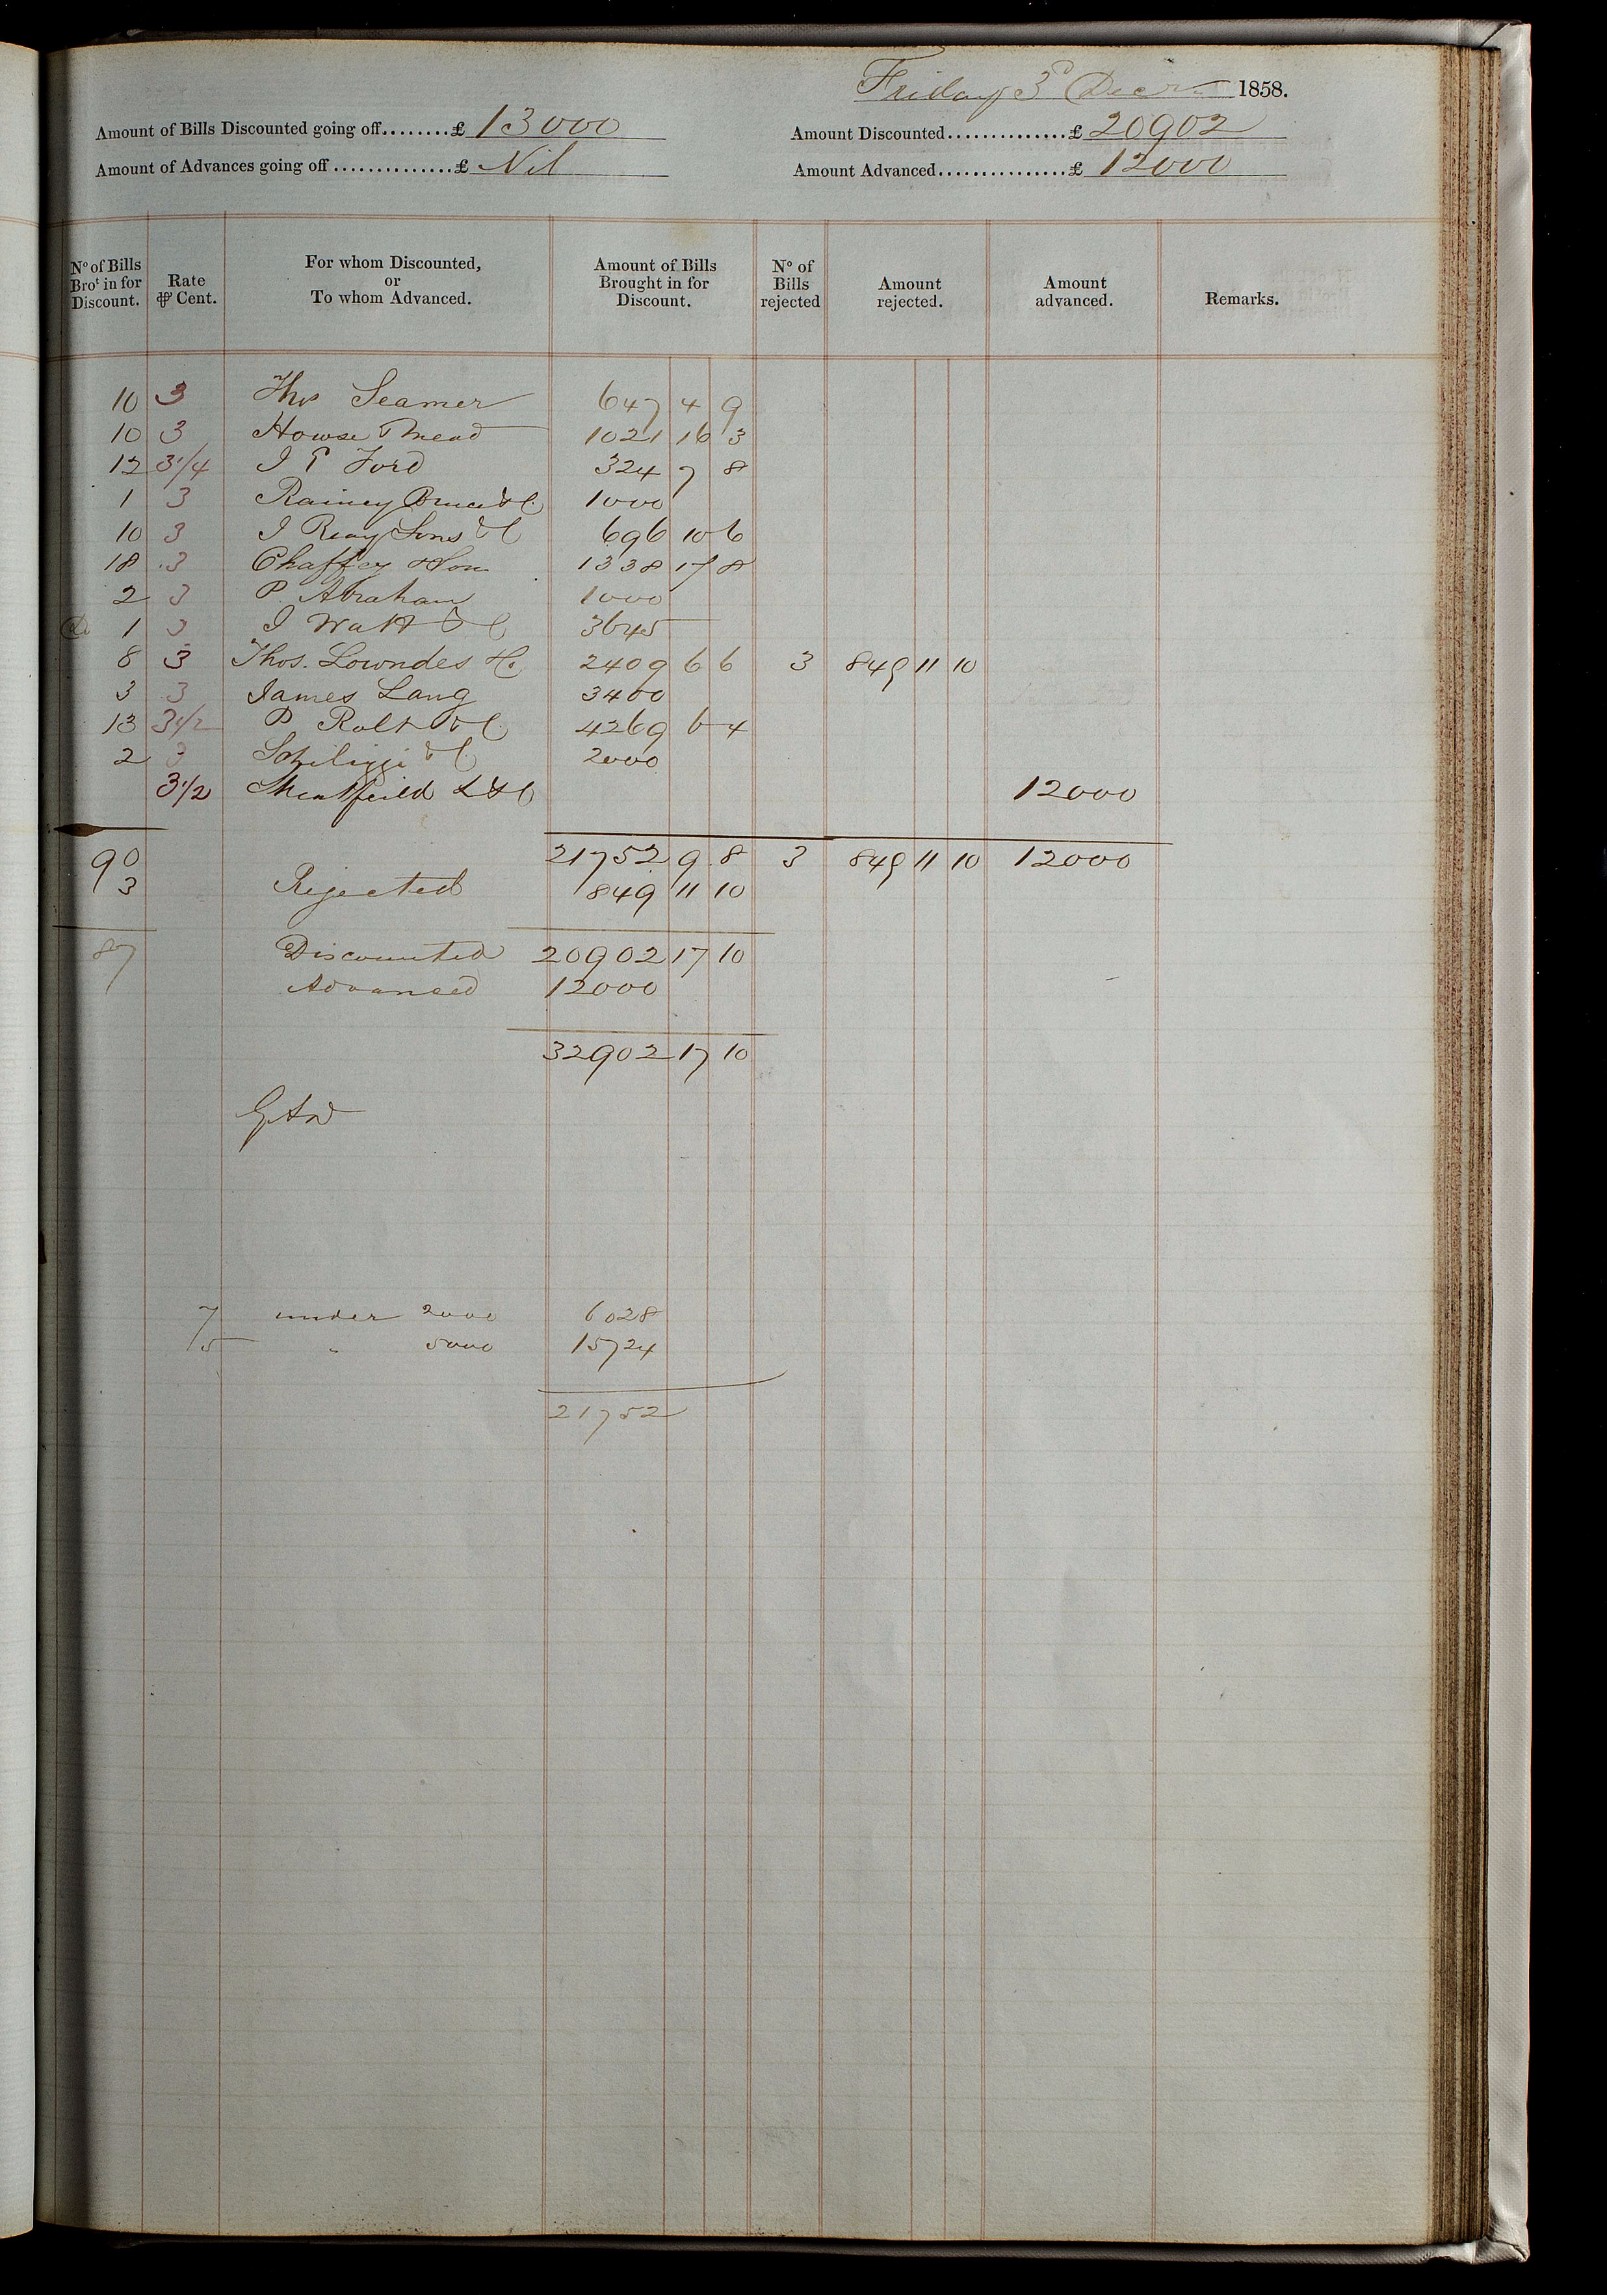 Friday 3d Decr 1858.
Amount of Bills Discounted going off........£ 13000 Amount Discounted..............£ 20902
Amount of Advances going off..............£ Nil Amount Advanced...............£ 12000
No of Bills Brot in for Discount. Rate ⅌ Cent. For whom Discounted, or To whom Advanced. Amount of Bills Brought in for Discount. No of Bills rejected Amount rejected. Amount advanced. Remarks.
10 3 Thos Seamer 647 4 9
10 3 Howse & Mead 1021 16 3
12 3 1/4 J P Ford 324 7 8
1 3 Rainey Bruce & C 1000
10 3 J Reay Sons & C 696 10 6
18 3 Chaffey & Son 1338 17 8
2 3 P. Abraham 1000
1 3 J Watt & C 3645
8 3 Thos. Lowndes & Co 2409 6 6 3 849 11 10
3 3 James Lang 3400
13 3 1/2 P Rolt & C 4269 6 4
2 3 Schilizzi & C 2000
3 1/2 & C 12000
90 21752 9 8 3 849 11 10 12000
3 Rejected 849 11 10
87 Discounted 20902 17 10
Advanced 12000
32902 17 10
7 under 2000 6028
5 " 5000 15724
21752